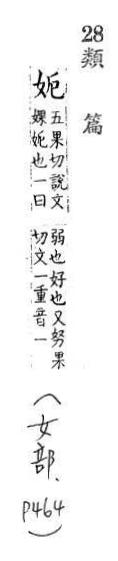 28
類 篇
㛂
五果切說文
婐㛂也一曰
弱也好也又努果
切文一重音一
(女部、P464)